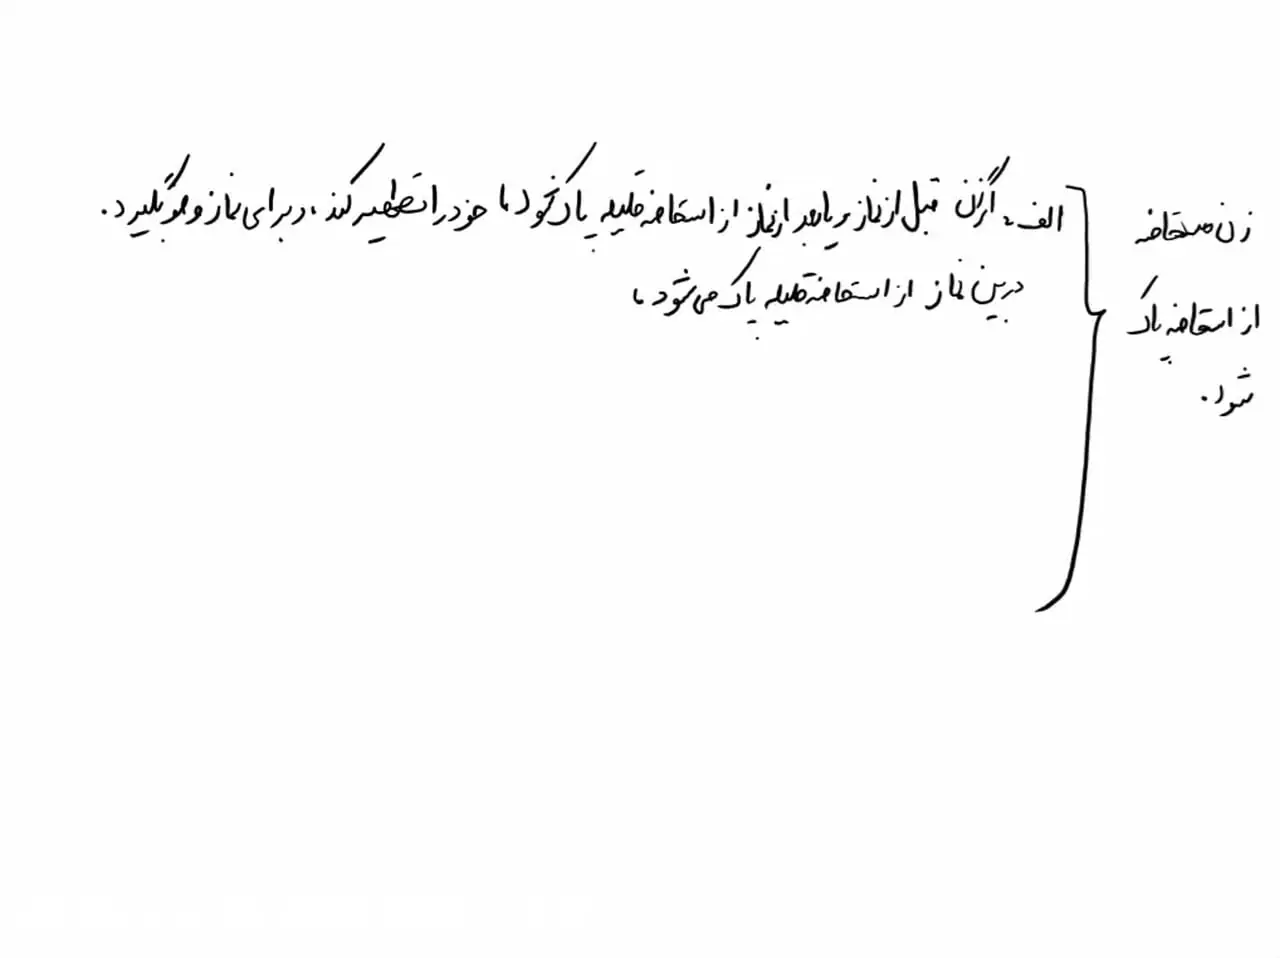 زن مستحاضه
از استحاضه پاک
شود.
الف، اگر زن قبل از نماز و یا بعد از نماز از استحاضه قلیله پاک شود، خود را تطهیر کند، و برای نماز وضو بگیرد.
در بین نماز از استحاضه قلیله پاک می شود،